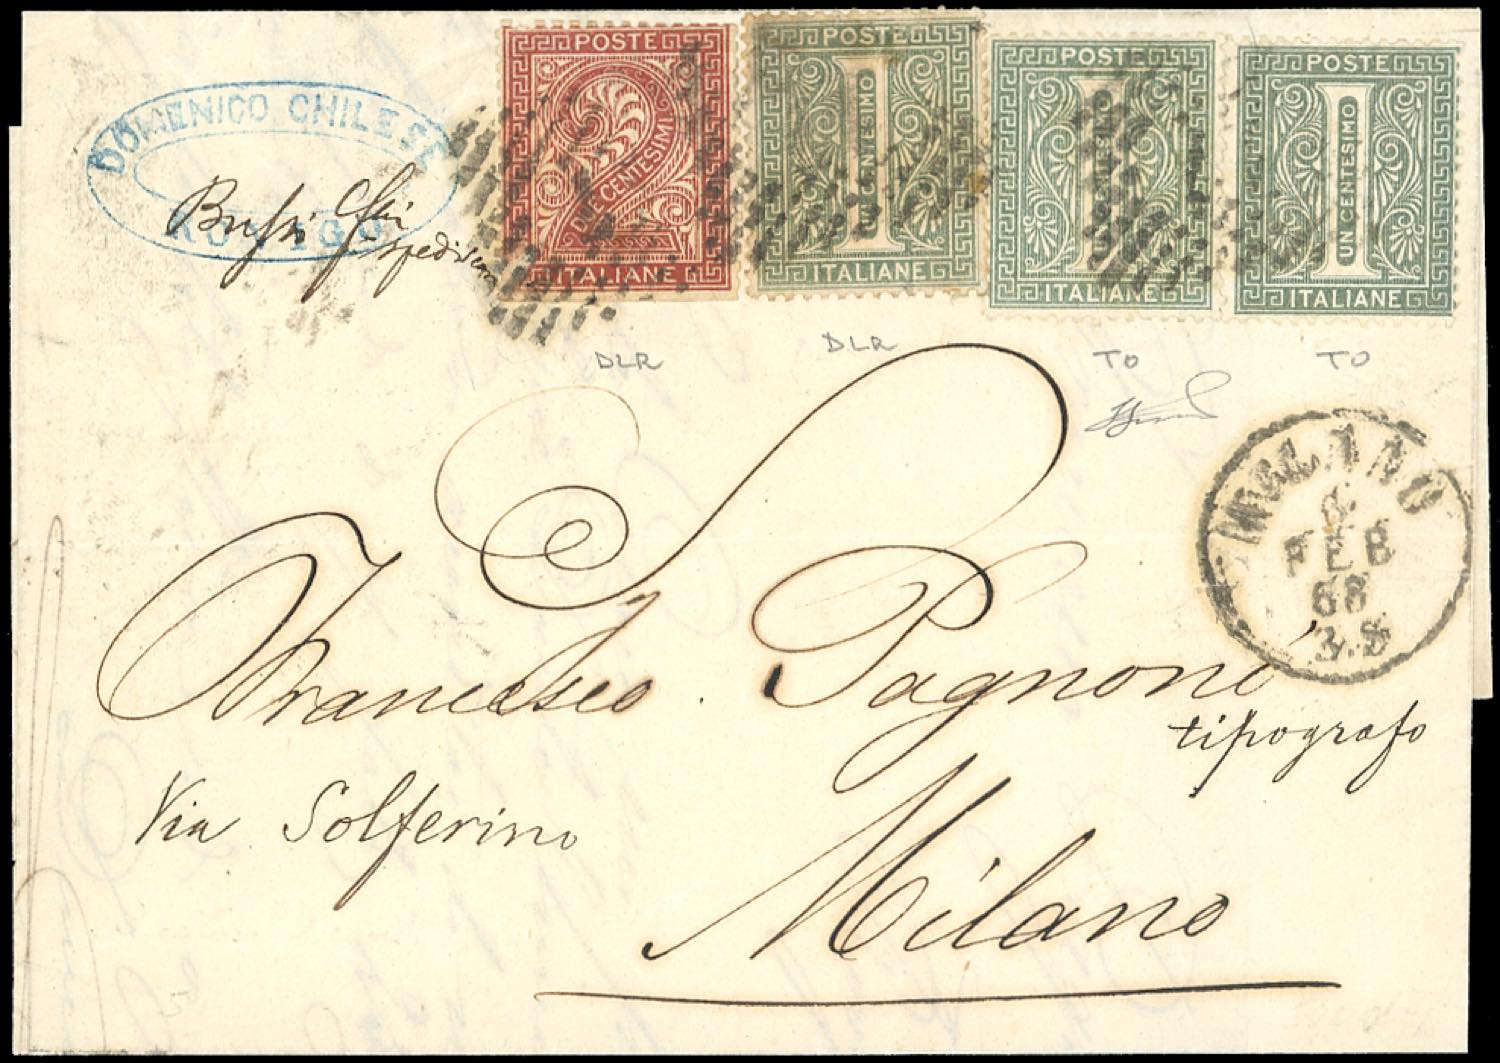 POSTE
DUE CENTESIMI
ITALIANE
POSTE
UN CENTESIMO
ITALIANE
POSTE
UN CENTESIMO
ITALIANE
POSTE
UN CENTESIMO
ITALIANE
DOMENICO CHILESE
ROVIGO
DLR
DLR
TO
TO
MILANO
6
FEB
68
3.S
Francesco Pagnoni
tipografo
Via Solferino
Milano